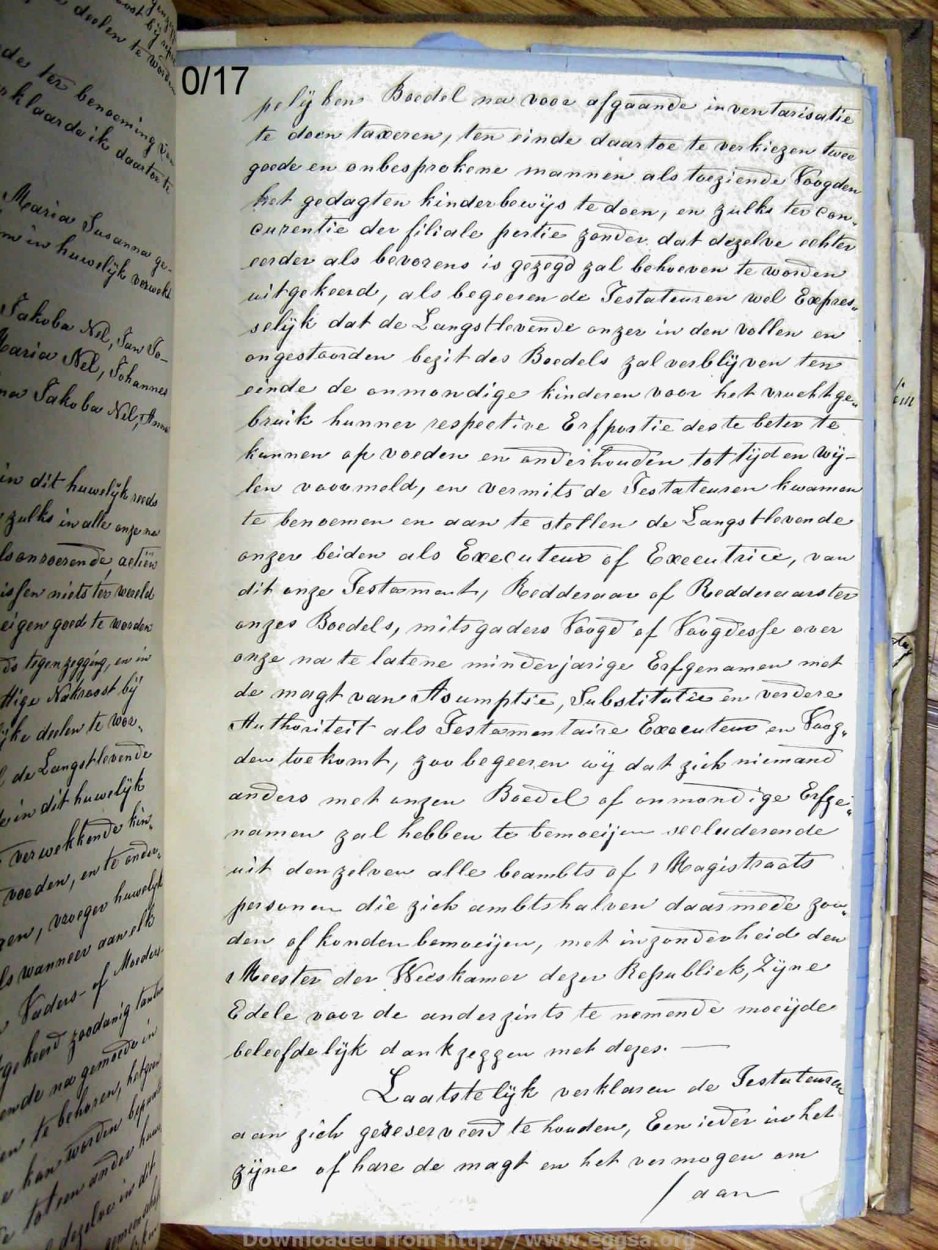 deelen te worden
de ter benoeming van
klaarde ik daartoe te
Maria Susanna ge-
in huwelijk verwekt
Jakoba Nel, Jan Jo-
Maria Nel, Johannes
Jakoba Nel, Anna
in dit huwelijk reeds
zulks in alle onze na
actien
niets ter wereld
eigen goed te worden
tegenzegging, en in
bij
deelen te wor-
de Langstlevende
in dit huwelijk
verwekkende kin-
voeden, en te onder-
vroeger huwelijk
wanneer aan elk
Vaders- of Moeders-
zoodanig
na gemoede in
te behoren, hetgeen
kan worden bepaald
tot een ander
dezelve in dit
0/17
pelijken Boedel na voor afgaande inventarisatie
te doen taxeren, ten einde daartoe te verkiezen twee
goede en onbesprokene mannen als toeziende Voogden
het gedagten kinderbewijs te doen, en zulks ter con-
curentie der filiale portie zonder dat dezelve echter
eerder als bevorens is gezegd zal behoeven te worden
uitgekeerd, als begeeren de Testateuren wel Expres-
selijk dat de Langstlevende onzer in den vollen en
ongestoorden bezit des Boedels zal verblijven ten
einde de onmondige kinderen voor het vruchtge-
bruik hunner respective Erfportie des te beter te
kunnen op voeden en onderhouden tot tijd en wij-
len voormeld, en vermits de Testateuren kwamen
te benoemen en aan te stellen de Langstlevende
onzer beiden als Executeur of Executrice, van
dit onze Testament, Redderaar of Redderaarster
onzes Boedels, mitsgaders Voogd of Voogdesse over
onze na te latene minderjarige Erfgenamen met
de magt van Asumptie, Substitutie en verdere
Authoriteit als Testamentaire Executeur en Voog-
den toekomt, zoo begeeren wij dat zich niemand
anders met onzen Boedel of onmondige Erfge-
namen zal hebben te bemoeijen secluderende
uit denzelven alle beambts of Magistraats
personen die zich ambtshalven daarmede zou-
den of konden bemoeijen, met inzonderheid den
Meester der Weeskamer dezer Republiek, Zijne
Edele voor de anderzints te nemende moeijde
beleefdelijk dankzeggen met dezes. —
Laatstelijk verklaren de Testateuren
aan zich gereserveerd te houden, Een ieder in het
zijne of hare de magt en het vermogen om
/ aan
Downloaded from http://www.eggsa.org